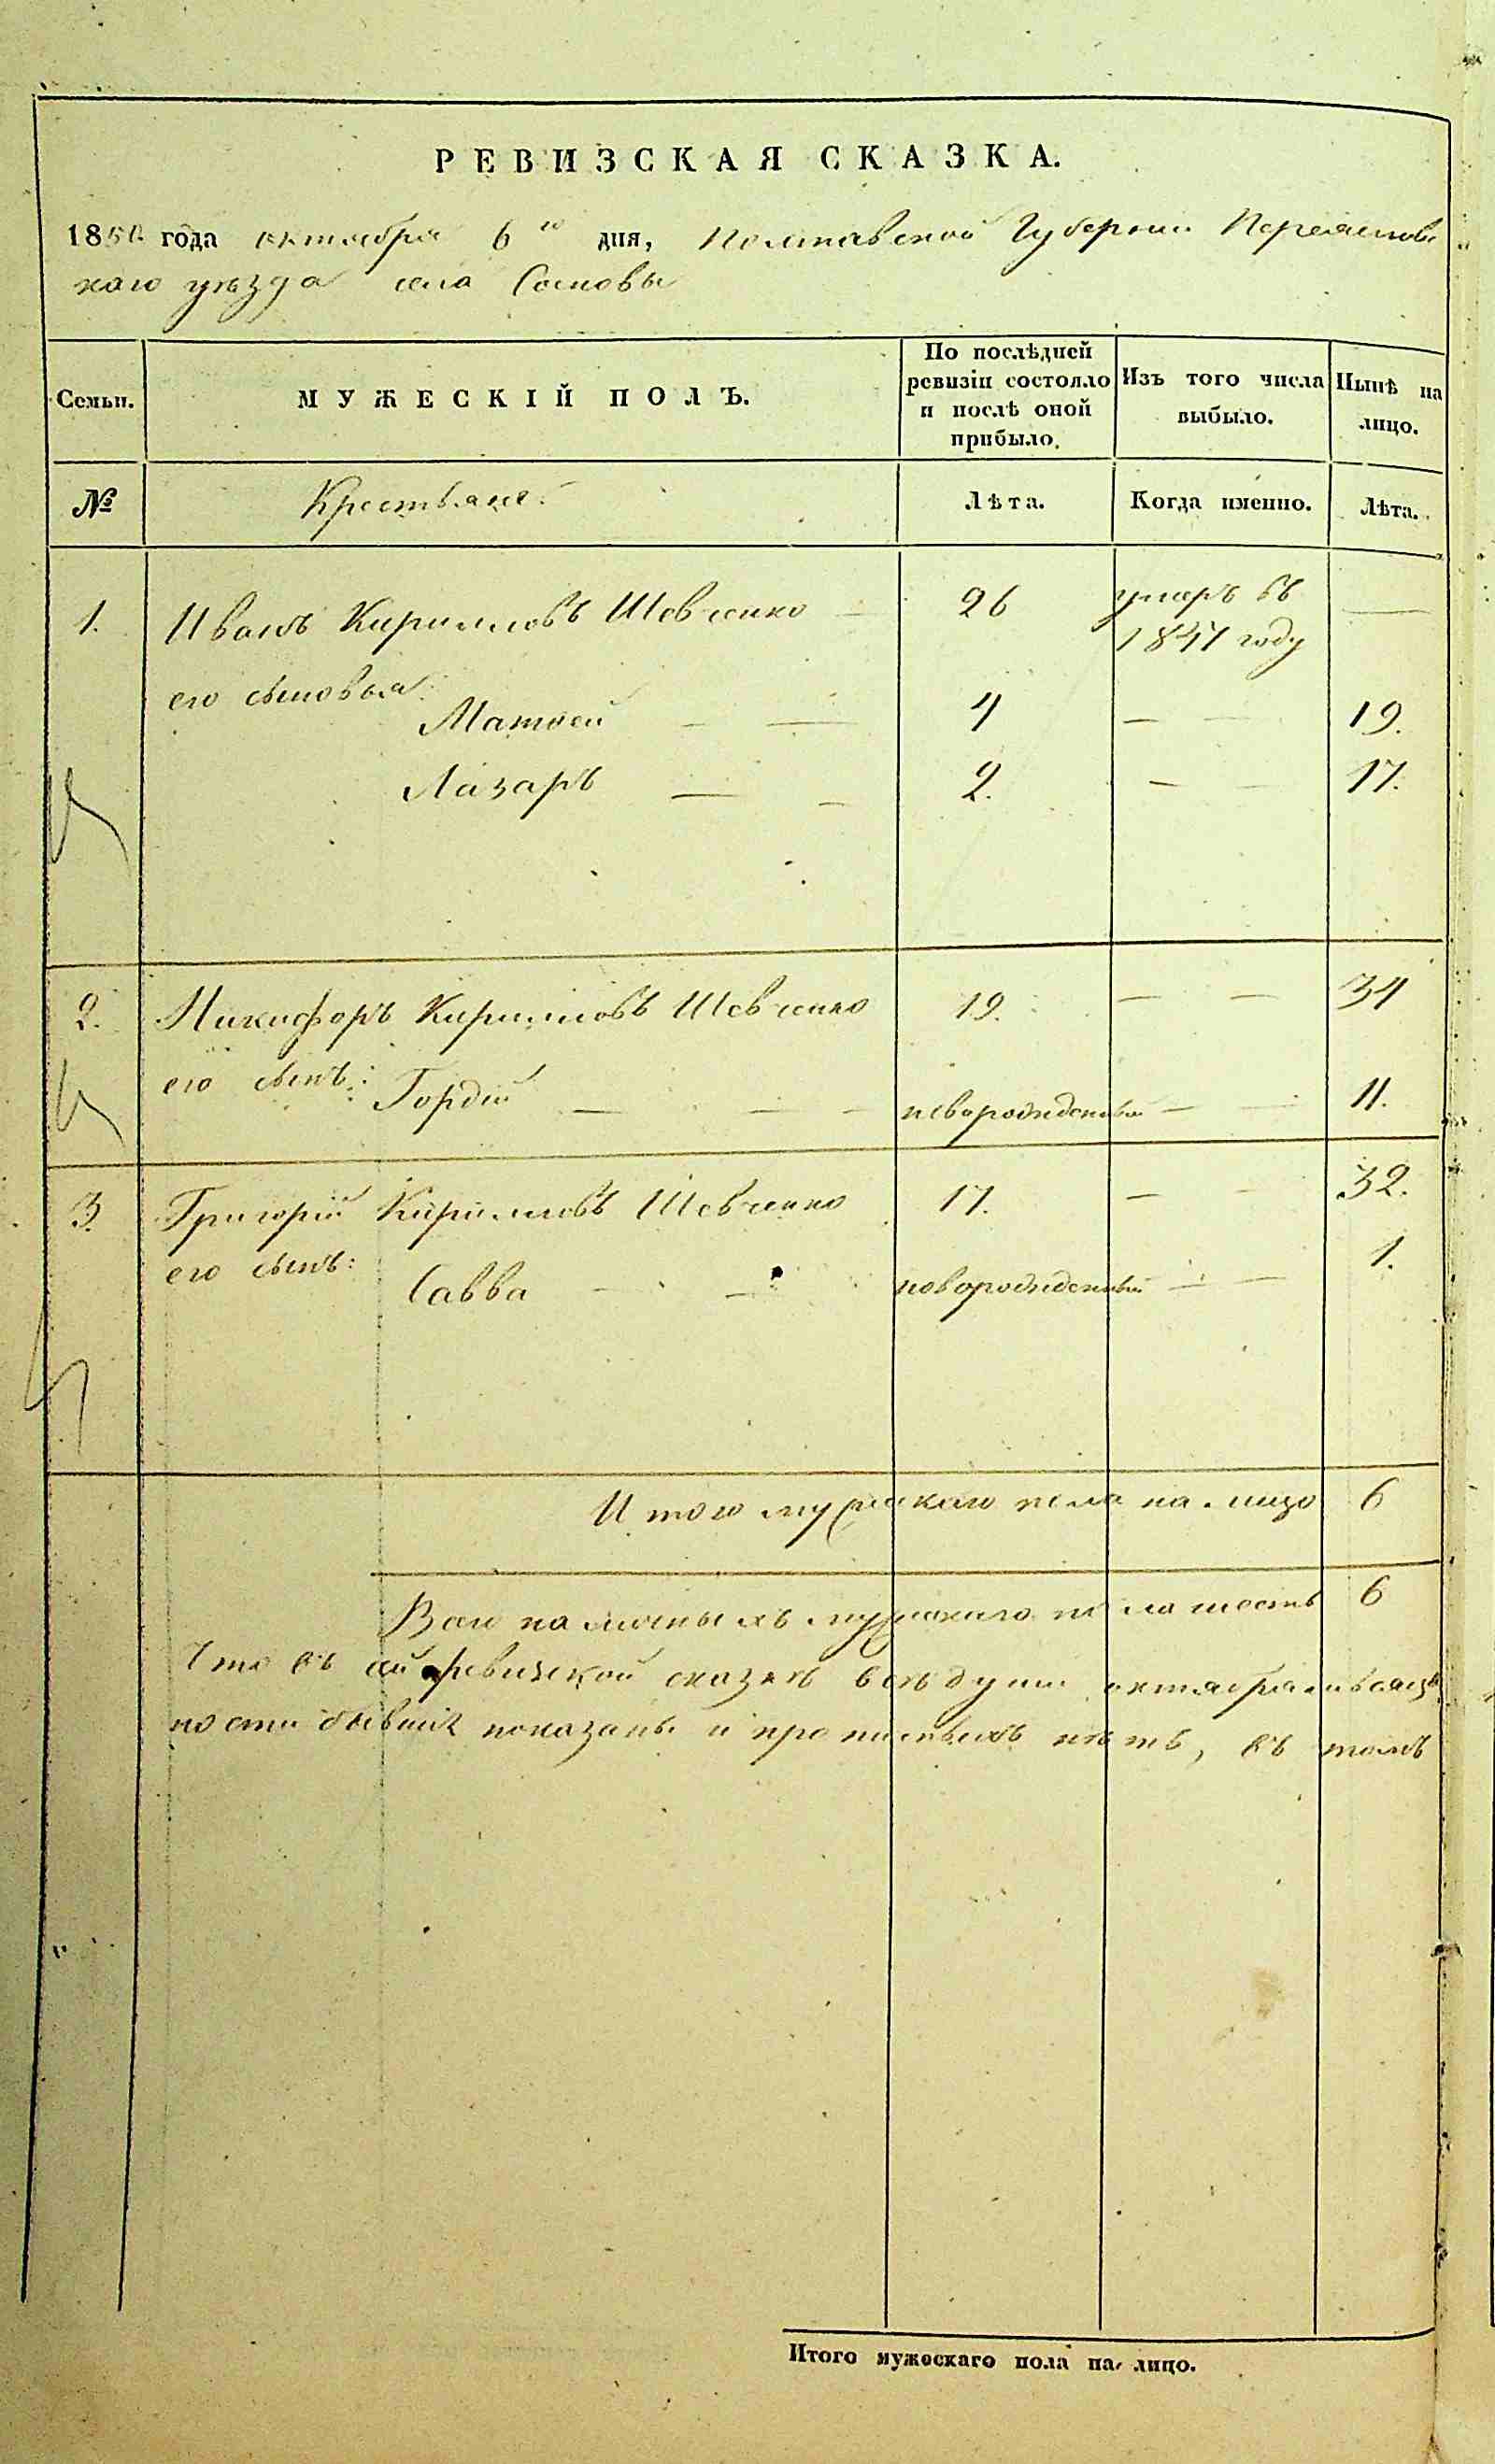 РЕВИЗСКАЯ СКАЗКА.
1850 года октября 6го дня, Полтавской Губернии Переяслов
скаго уезда села Сосновы
Семьи.
МУЖЕСКІЙ ПОЛЪ.
По послѣдней
ревизіи состояло
и послѣ оной
прибыло.
Изъ того числа
выбыло.
Нынѣ на
лицо.
№
Крестьяне.
Лѣта.
Когда именно.
Лѣта.
1. Иванъ Кирилловъ Шевченко — 26 умеръ въ —
1847 году
его сыновья:
Матвей — — 4 — 19.
Лазаръ — — 2. — 17.
2. Никифоръ Кирилловъ Шевченко 19. — — 34
его сынъ: Гордій — — — новорожденный — 11.
3. Григорій Кирилловъ Шевченко 17. — 32.
его сынъ: Савва — — новорожденный — — 1.
Итого мужескаго пола на лицо 6
Всего наличныхъ мужескаго пола шесть 6
Что въ сей ревизской сказке все души
бывшие показаны и прописныхъ нетъ, въ томъ
Итого мужескаго пола на лицо.